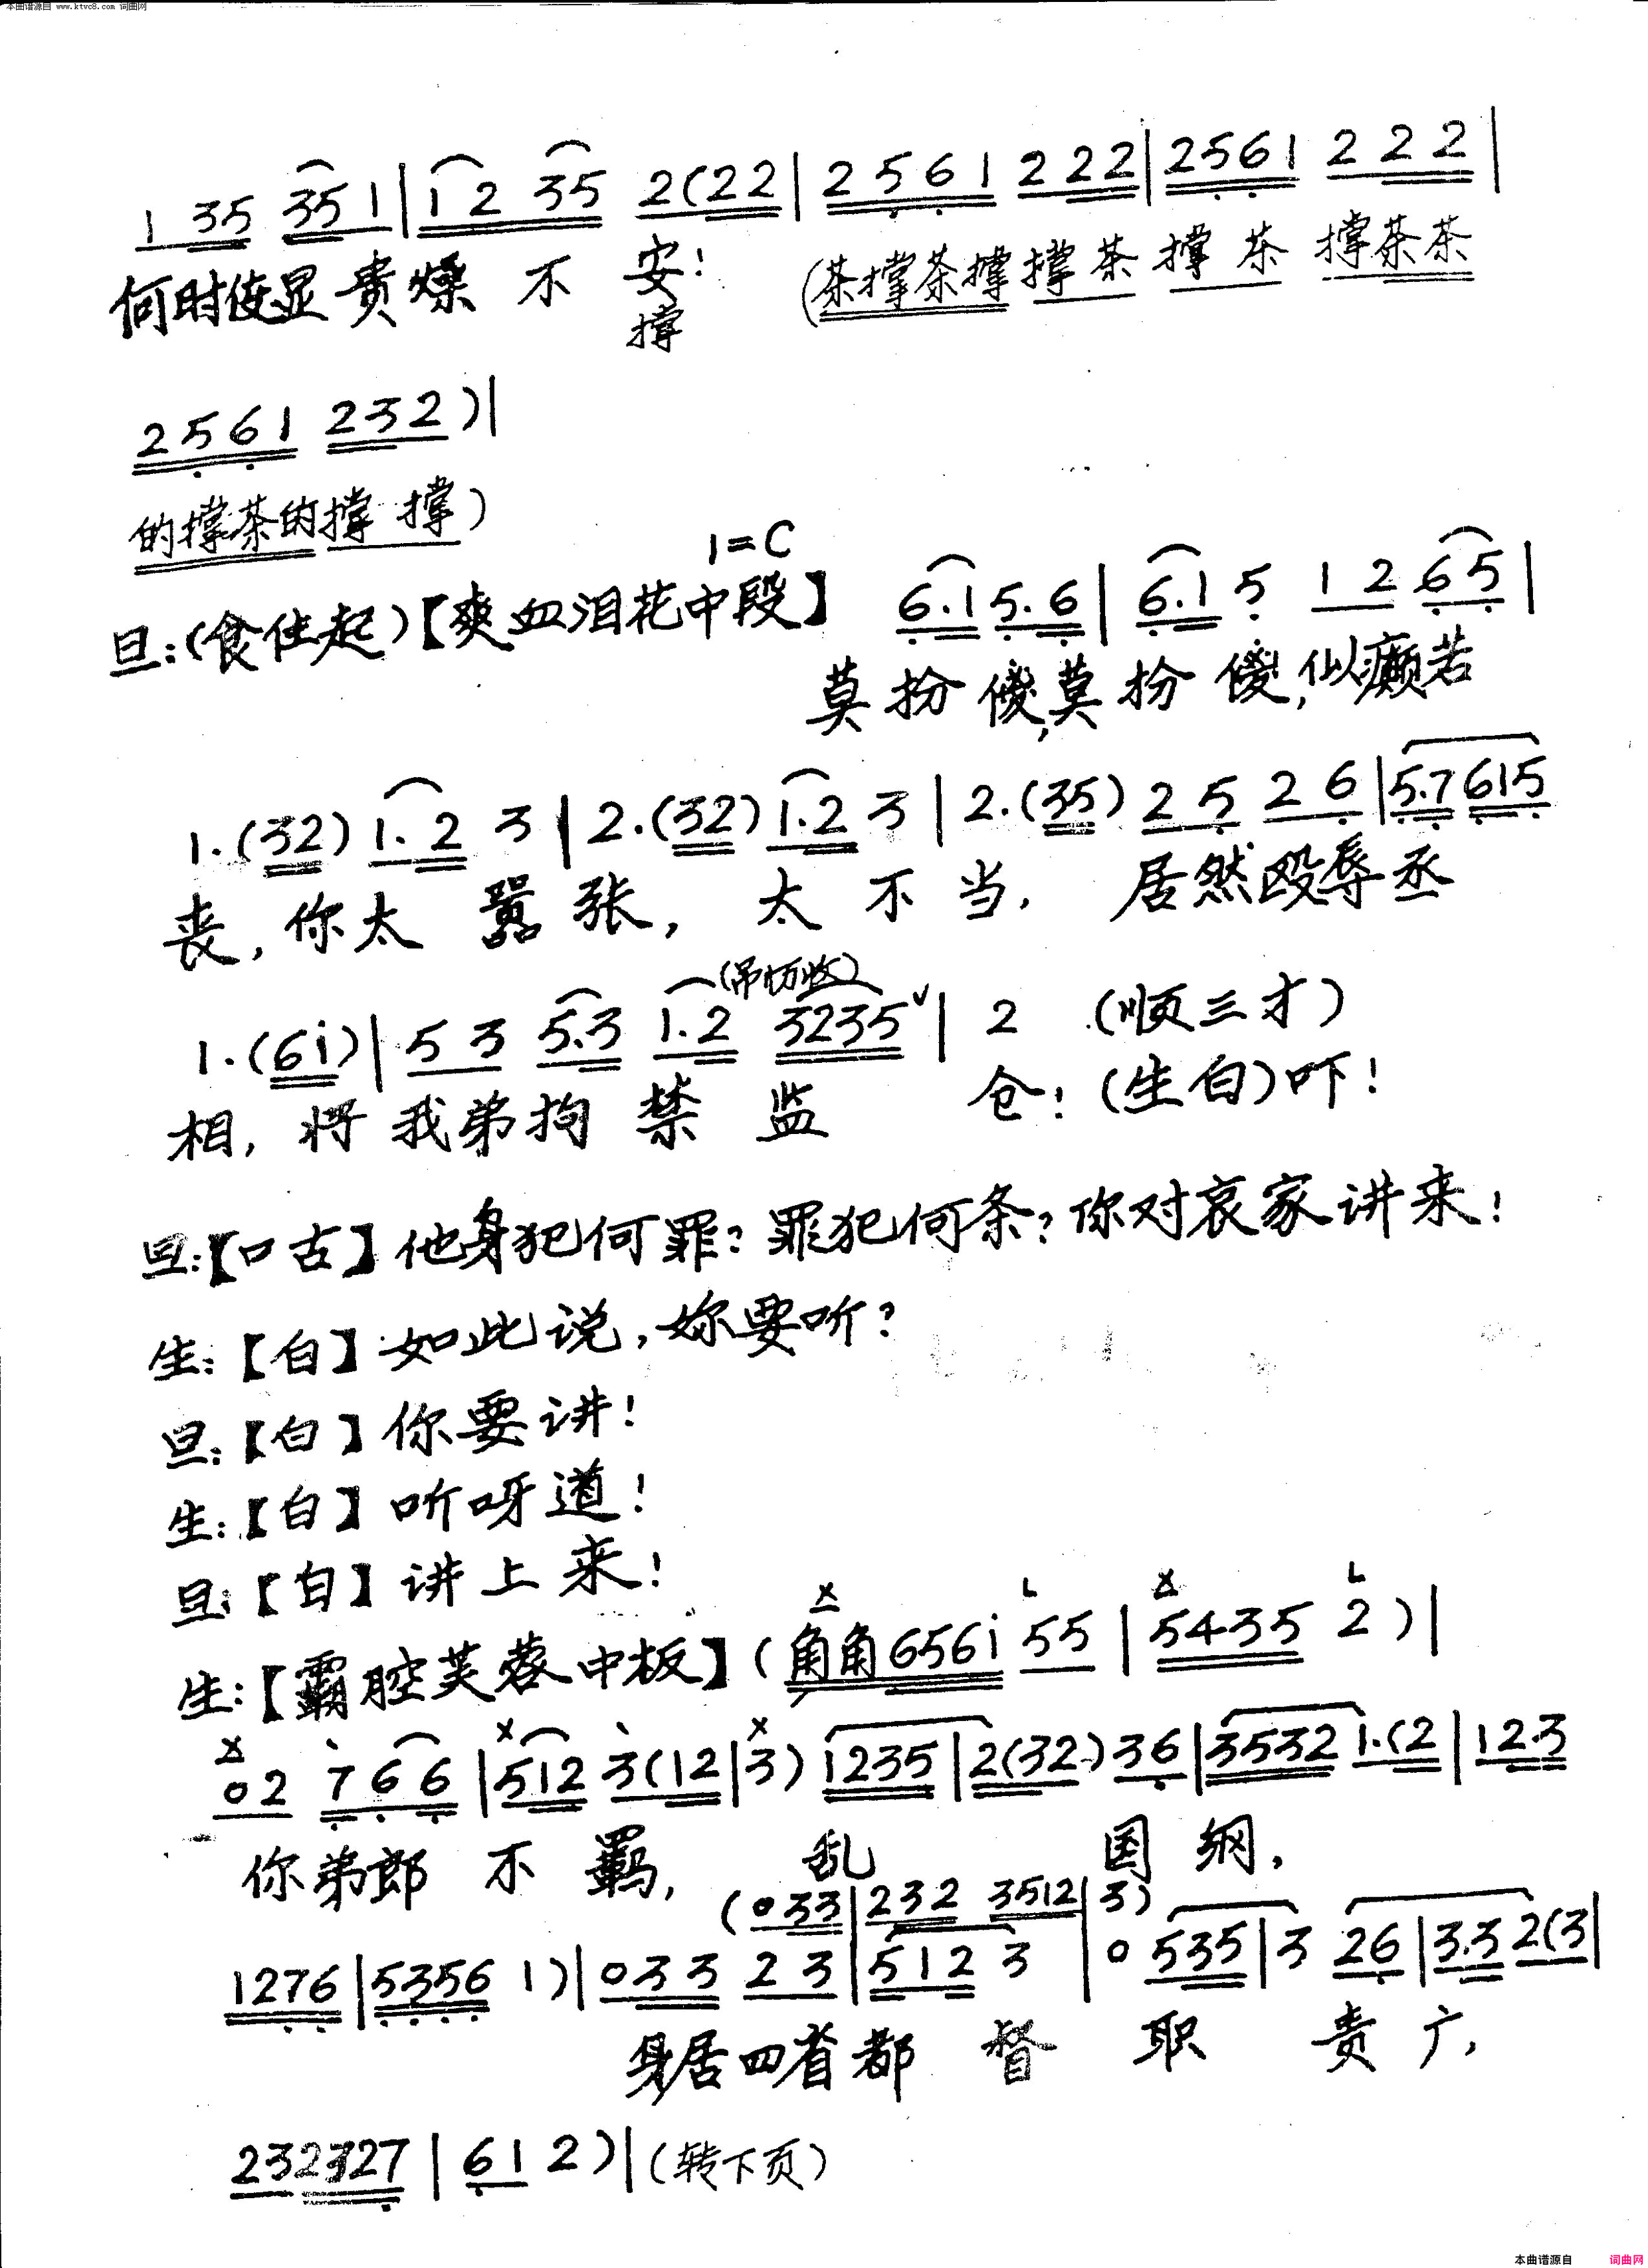 本曲谱源自 www.ktvc8.com 词曲网
1 35 351|12 35 2(22|2561 222|2561 222|
何时使显贵燥不安! (茶撑茶撑撑茶撑茶撑茶茶
撑
2561 232)|
的撑茶的撑撑)
1=C
旦:(食住起)【爽血泪花中段】 6.1 5.6|6.1 5 12 65|
莫扮傻,莫扮傻,似癫若
1.(32) 1.2 3|2.(32) 1.2 3|2.(35) 25 26|5.7 615
丧,你太嚣张,太不当,居然殴辱丞
(吊切收)
1.(6i)|53 5.3 1.2 3235ˇ|2 (顺三才)
相,将我弟拘禁监仓!(生白)吓!
旦:【口古】他身犯何罪?罪犯何条?你对哀家讲来!
生:【白】如此说,妳要听?
旦:【白】你要讲!
生:【白】听呀道!
旦:【白】讲上来!
生:【霸腔芙蓉中板】(角角656i 55|5435 2)|
02 766|512 3(12|3) 1235|2(32) 36|3532 1.(2|12.3
你弟郎不羁,乱国纲,
(033|232 3512|3)
1276|5356 1)|033 23|512 3|0 535|3 26|3.3 2(3|
身居四省都督职责广,
232327|61 2)|(转下页)
本曲谱源自 词曲网